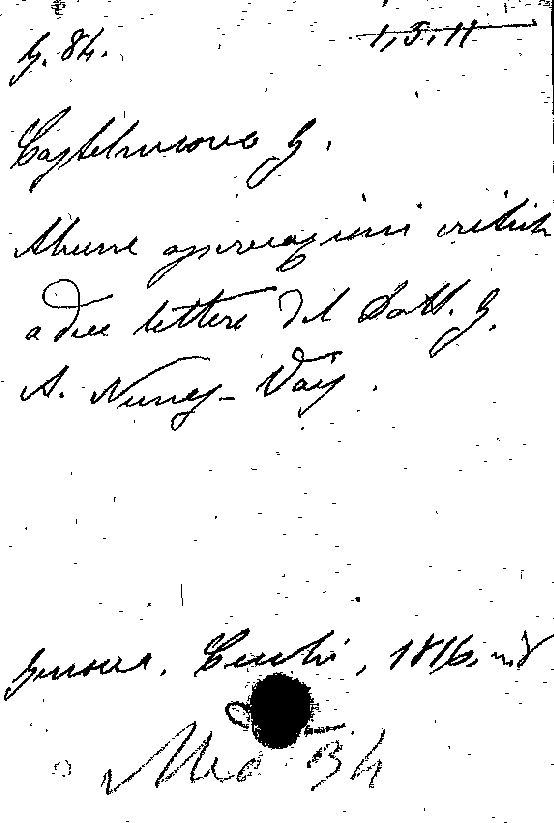 G. 84. 1,5,11
Castelnuovo G.
Alcune osservazioni critich
a due lettere del Dott. G.
A. Nunez-Vais.
Genova, 1816. in 8
Med 34